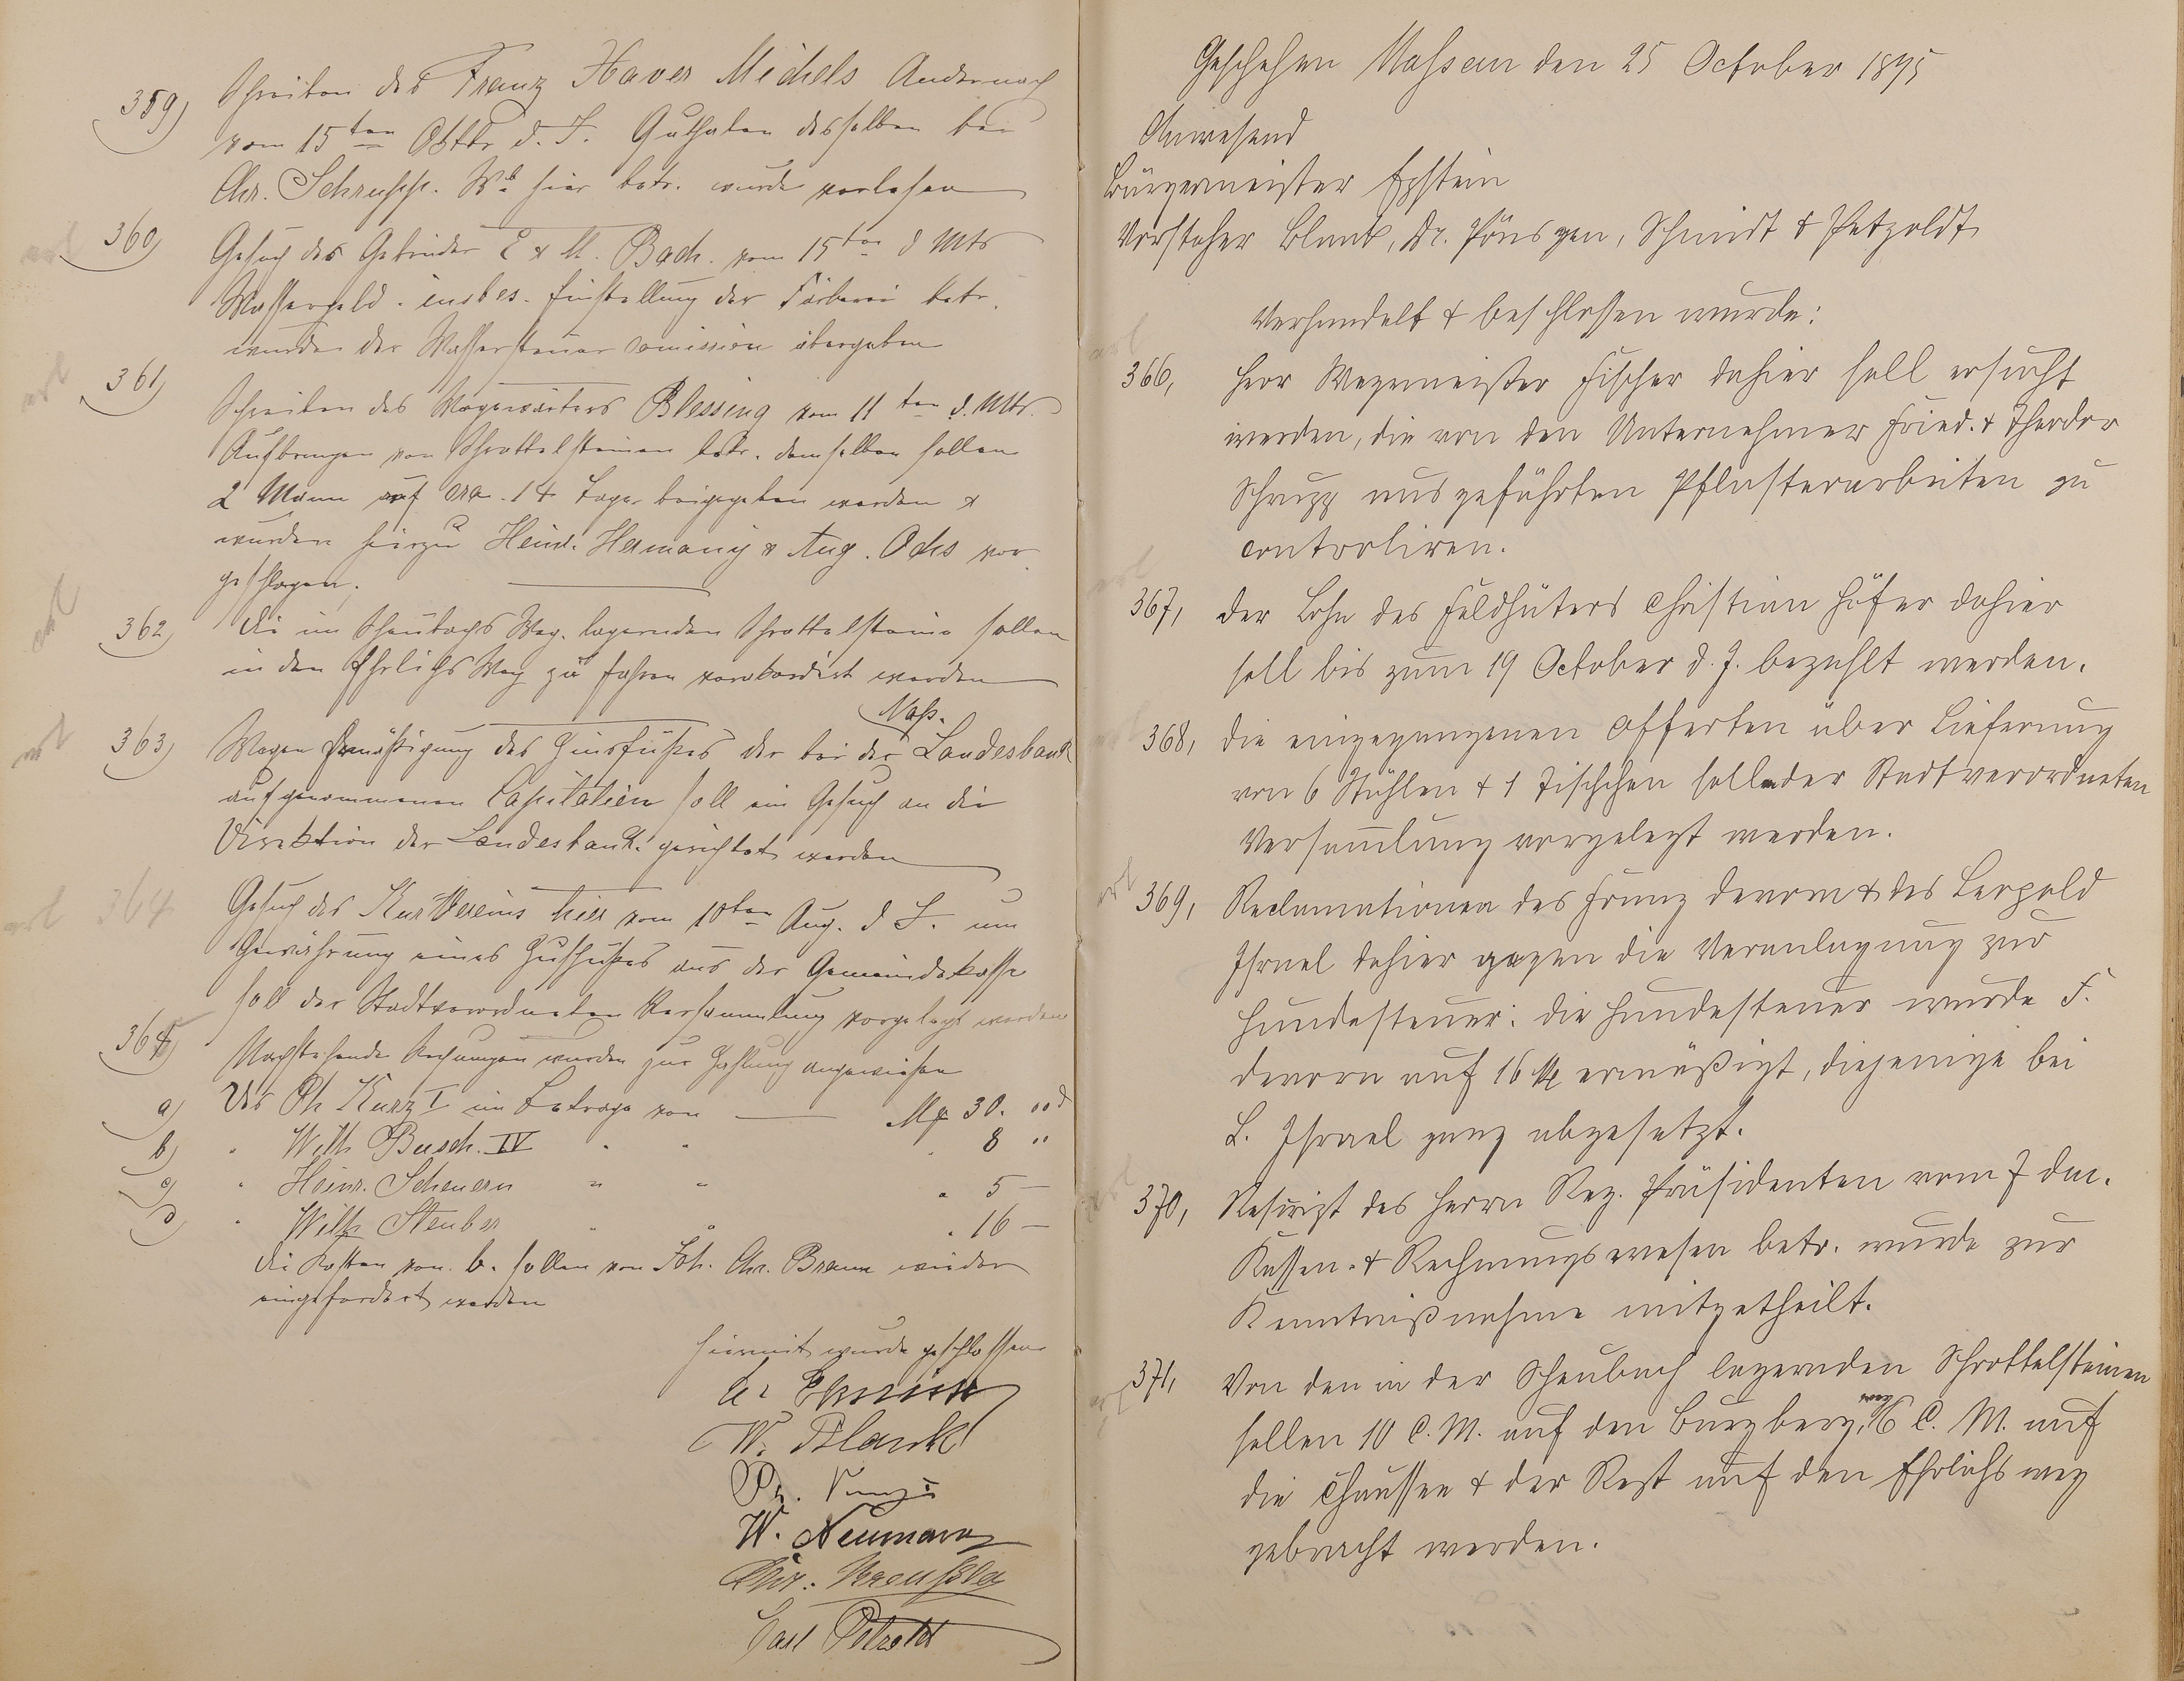 359) Schreiben des Franz Xaver Michels Andernach
vom 15ten Oktbr d. J. Guthaben desselben bei
Chr. Schrupp. Wb hier betr. wurde verlesen
360) Gesuch der Gebrüder E & M. Bach. vom 15ten d Mts
Wassergeld. insbes. Einstellung der Färberei betr.
wurde der Wassersteuer Comission übergeben
361) Schreiben des Wegewärters Blessing vom 11ten d. Mts.
Aufbringen von Schrottelsteinen betr. demselben sollen
2 Mann auf cra. 14 Tage beigegeben werden &
wurden hierzu Heinr. Hermany & Aug. Ochs vor
geschlagen.
362) Die im Scheubachs Weg. lagernden Schrottelsteine sollen
in den Ehrlichs Weg zu fahren verakordirt werden
Nass.
363) Wegen Ermäßigung des Zinsfußes der bei der Landesbank
aufgenommenen Capitalien soll ein Gesuch an die
Direktion der Landesbank gerichtet werden
364 Gesuch des Kur Vereins hier vom 10ten Aug. d J. um
Gewährung eines Zuschußes aus der Gemeindekasse
soll der Stadtverordneten Versammlung vorgelegt werden
365) Nachstehende Rechnungen wurden zur Zahlung angewiesen
a) Des Ph Kurz I im Betrage von — Mk 30. 00 d
b) " Wilh Busch. IV " " " 8 "
c) " Heinr. Scheuern " " " 5 —
d) " Wilh Steuber " " " 16 —
Die Kosten von b. sollen von Joh. Chr. Braun wieder
eingefordert werden
Hiermit wurde geschlossen
W. Blank
W. Neumann
Carl Petzold
Geschehen Nassau den 25 October 1895
Anwesend
Bürgermeister Epstein
Vorsteher Blank, Dr. Pönsgen, Schmidt & Petzoldt
Verhandelt & beschlossen wurde:
366, Herr Wegemeister Fischer dahier soll ersucht
werden, die von den Unternehmer Fried. & Theodor
Schrupp ausgeführten Pflasterarbeiten zu
controliren.
367, Der Lohn des Feldhüters Christian Höfer dahier
soll bis zum 19 October d. J. bezahlt werden.
368, Die eingegangenen Offerten über Lieferung
von 6 Stühlen & 1 Tischchen soll der Stadtverordneten
Versammlung vorgelegt werden.
369, Reclamationen des Franz Devorn & des Leopold
Israel dahier gegen die Veranlagung zur
Hundesteuer: die Hundesteuer wurde F.
Devorn auf 16 M ermäßigt, diejenige bei
L. Israel ganz abgesetzt.
370, Rescript des Herrn Reg. Präsidenten vom 7 d M.
Kassen- & Rechnungswesen betr. wurde zur
Kenntnißnahme mitgetheilt.
371, Von den in der Scheubach lagernden Schrottelsteinen
sollen 10 C. M. auf den Burgberg, 6 C. M. auf
die Chaussee & der Rest auf den Ehrlichs weg
gebracht werden.